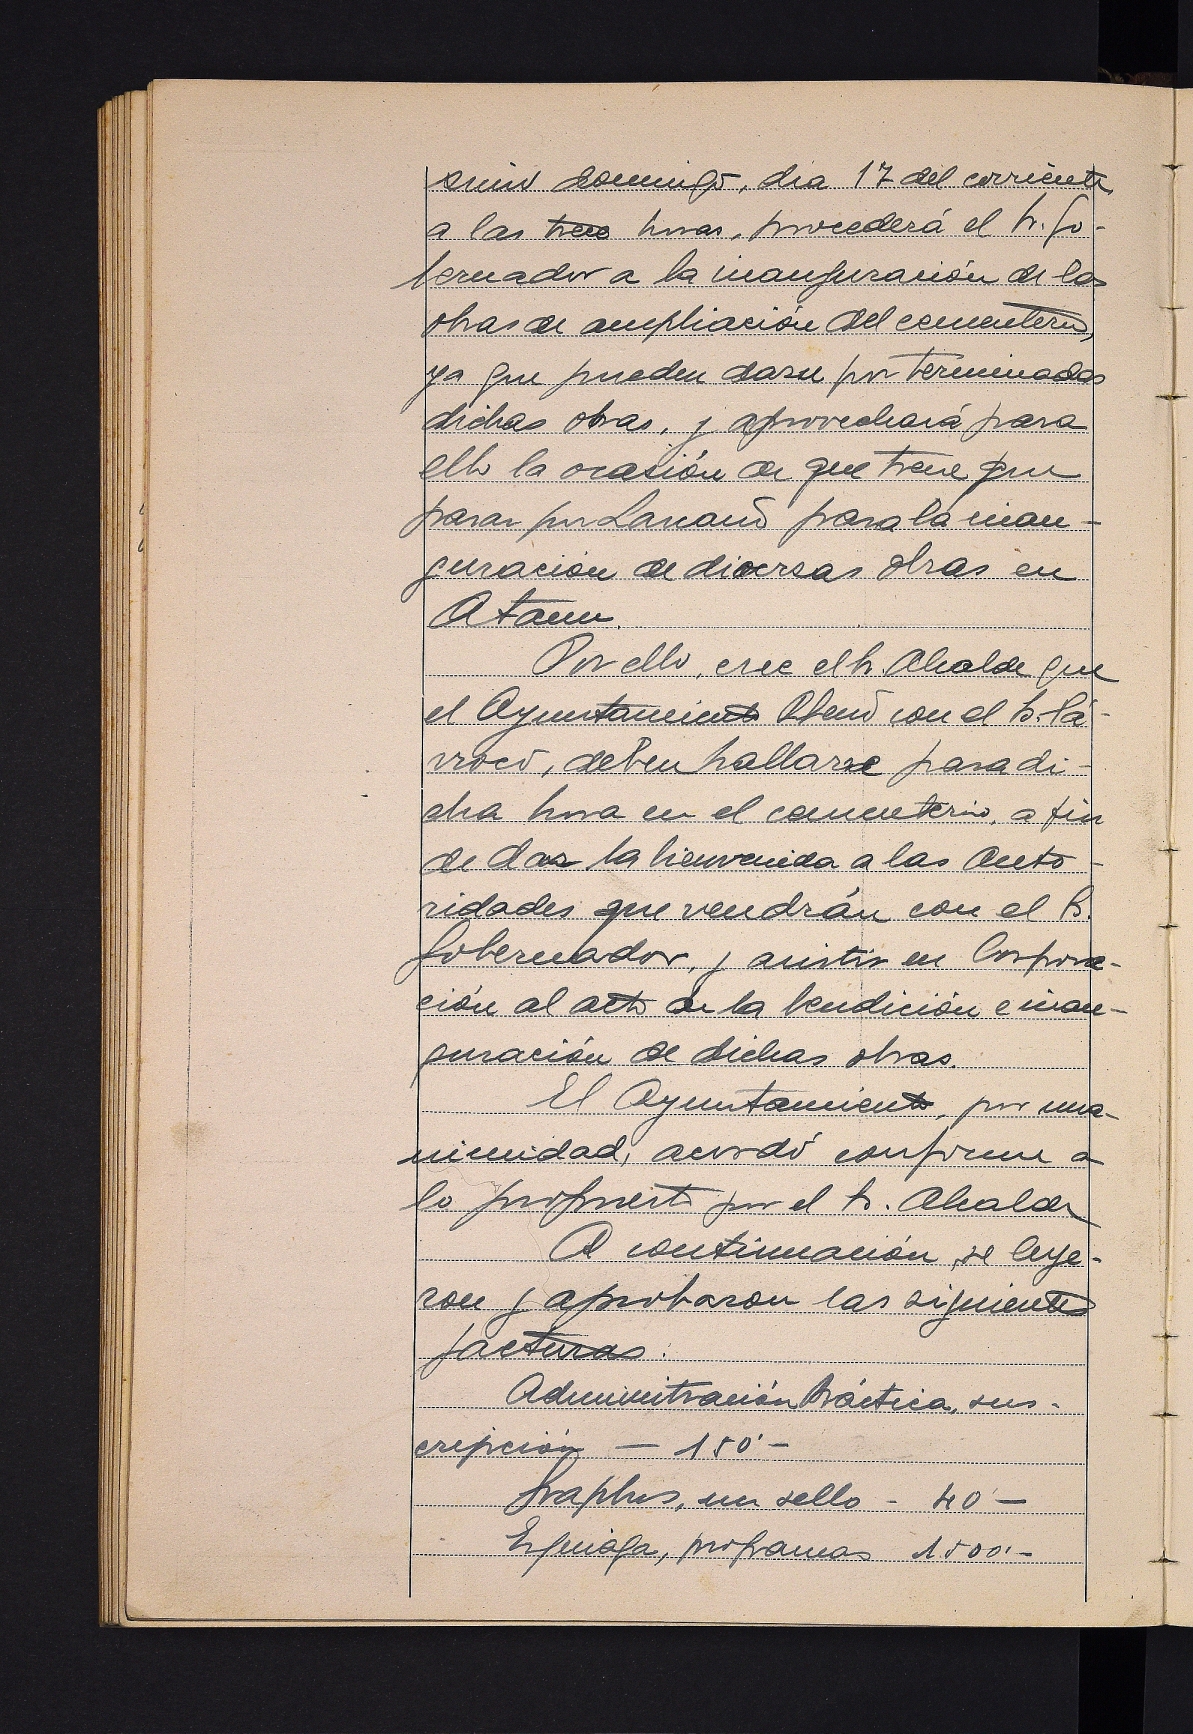 ximo domingo, dia 17 del corriente,
a las trece horas, procederá el Sr. Go-
bernador a la inauguración de las
obras de ampliación del cementerio,
ya que pueden darse por terminadas
dichas obras, y aprovechará para
ello la ocasión de que tiene que
pasar por Lazcano para la inau-
guración de diversas obras en
Ataun.
Por ello, cree el Sr. Alcalde que
el Ayuntamiento Pleno con el Sr. Pá-
rroco, deben hallarse para di-
cha hora en el cementerio, a fin
de dar la bienvenida a las Auto-
ridades que vendrán con el Sr.
Gobernador, y asistir en Corpora-
ción al acto de la bendición e inau-
guración de dichas obras.
El Ayuntamiento, por una-
nimidad, acordó conforme a
lo propuesto por el Sr. Alcalde
A continuación, se leye-
ron y aprobaron las siguientes
facturas:
Administración Práctica, sus-
cripción — 150'-
Graphos, un sello - 40'-
Espinaga, programas 1.500'-